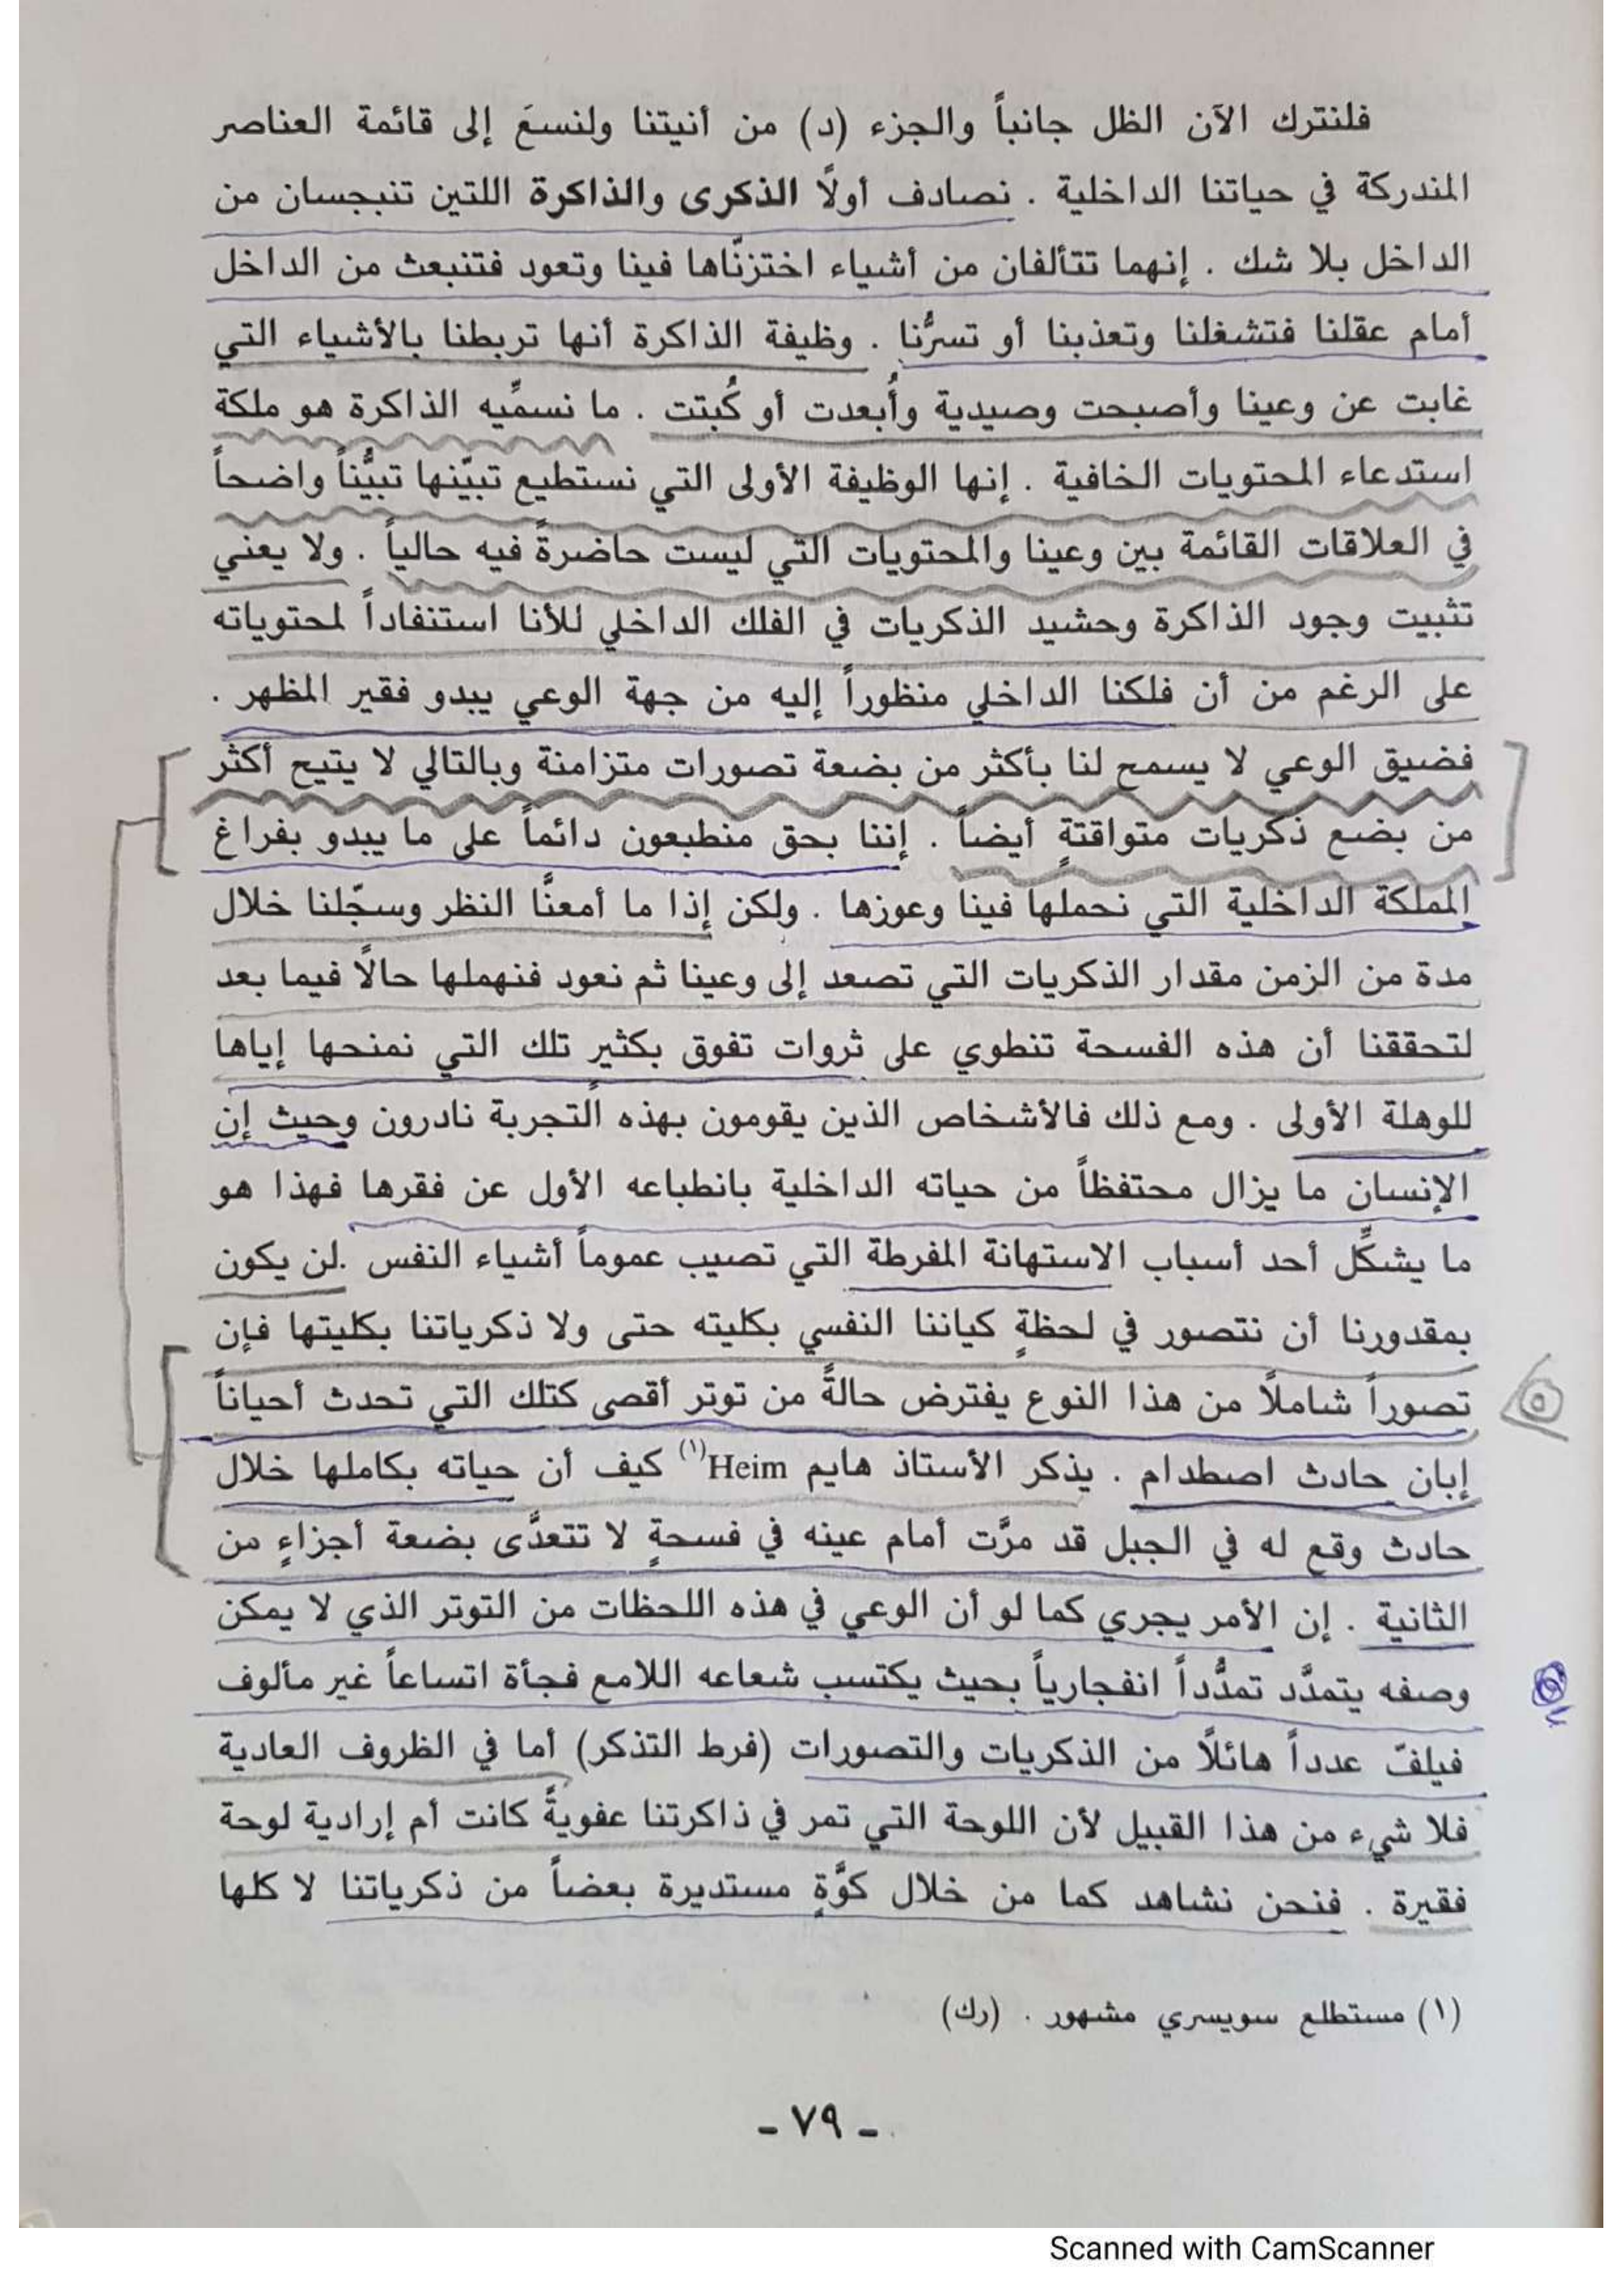 فلنترك الآن الظل جانباً والجزء (د) من أنيتنا ولنسعَ إلى قائمة العناصر
المندركة في حياتنا الداخلية . نصادف أولًا الذكرى والذاكرة اللتين تنبجسان من
الداخل بلا شك . إنهما تتألفان من أشياء اختزنّاها فينا وتعود فتنبعث من الداخل
أمام عقلنا فتشغلنا وتعذبنا أو تسرُّنا . وظيفة الذاكرة أنها تربطنا بالأشياء التي
غابت عن وعينا وأصبحت وصيدية وأُبعدت أو كُبتت . ما نسمِّيه الذاكرة هو ملكة
استدعاء المحتويات الخافية . إنها الوظيفة الأولى التي نستطيع تبيّنها تبيُّناً واضحاً
في العلاقات القائمة بين وعينا والمحتويات التي ليست حاضرةً فيه حالياً . ولا يعني
تثبيت وجود الذاكرة وحشيد الذكريات في الفلك الداخلي للأنا استنفاداً لمحتوياته
على الرغم من أن فلكنا الداخلي منظوراً إليه من جهة الوعي يبدو فقير المظهر .
فضيق الوعي لا يسمح لنا بأكثر من بضعة تصورات متزامنة وبالتالي لا يتيح أكثر
من بضع ذكريات متواقتةٍ أيضاً . إننا بحق منطبعون دائماً على ما يبدو بفراغ
المملكة الداخلية التي نحملها فينا وعوزها . ولكن إذا ما أمعنَّا النظر وسجّلنا خلال
مدة من الزمن مقدار الذكريات التي تصعد إلى وعينا ثم نعود فنهملها حالًا فيما بعد
لتحققنا أن هذه الفسحة تنطوي على ثروات تفوق بكثير تلك التي نمنحها إياها
للوهلة الأولى . ومع ذلك فالأشخاص الذين يقومون بهذه التجربة نادرون وحيث إن
الإنسان ما يزال محتفظاً من حياته الداخلية بانطباعه الأول عن فقرها فهذا هو
ما يشكِّل أحد أسباب الاستهانة المفرطة التي تصيب عموماً أشياء النفس .لن يكون
بمقدورنا أن نتصور في لحظةٍ كياننا النفسي بكليته حتى ولا ذكرياتنا بكليتها فإن
تصوراً شاملًا من هذا النوع يفترض حالةً من توتر أقصى كتلك التي تحدث أحياناً
إبان حادث اصطدام . يذكر الأستاذ هايم Heim(١) كيف أن حياته بكاملها خلال
حادث وقع له في الجبل قد مرَّت أمام عينه في فسحةٍ لا تتعدَّى بضعة أجزاءٍ من
الثانية . إن الأمر يجري كما لو أن الوعي في هذه اللحظات من التوتر الذي لا يمكن
وصفه يتمدَّد تمدُّداً انفجارياً بحيث يكتسب شعاعه اللامع فجأة اتساعاً غير مألوف
فيلفّ عدداً هائلًا من الذكريات والتصورات (فرط التذكر) أما في الظروف العادية
فلا شيء من هذا القبيل لأن اللوحة التي تمر في ذاكرتنا عفويةً كانت أم إرادية لوحة
فقيرة . فنحن نشاهد كما من خلال كوَّةٍ مستديرة بعضاً من ذكرياتنا لا كلها
(١) مستطلع سويسري مشهور . (رك)
- ٧٩ -
Scanned with CamScanner